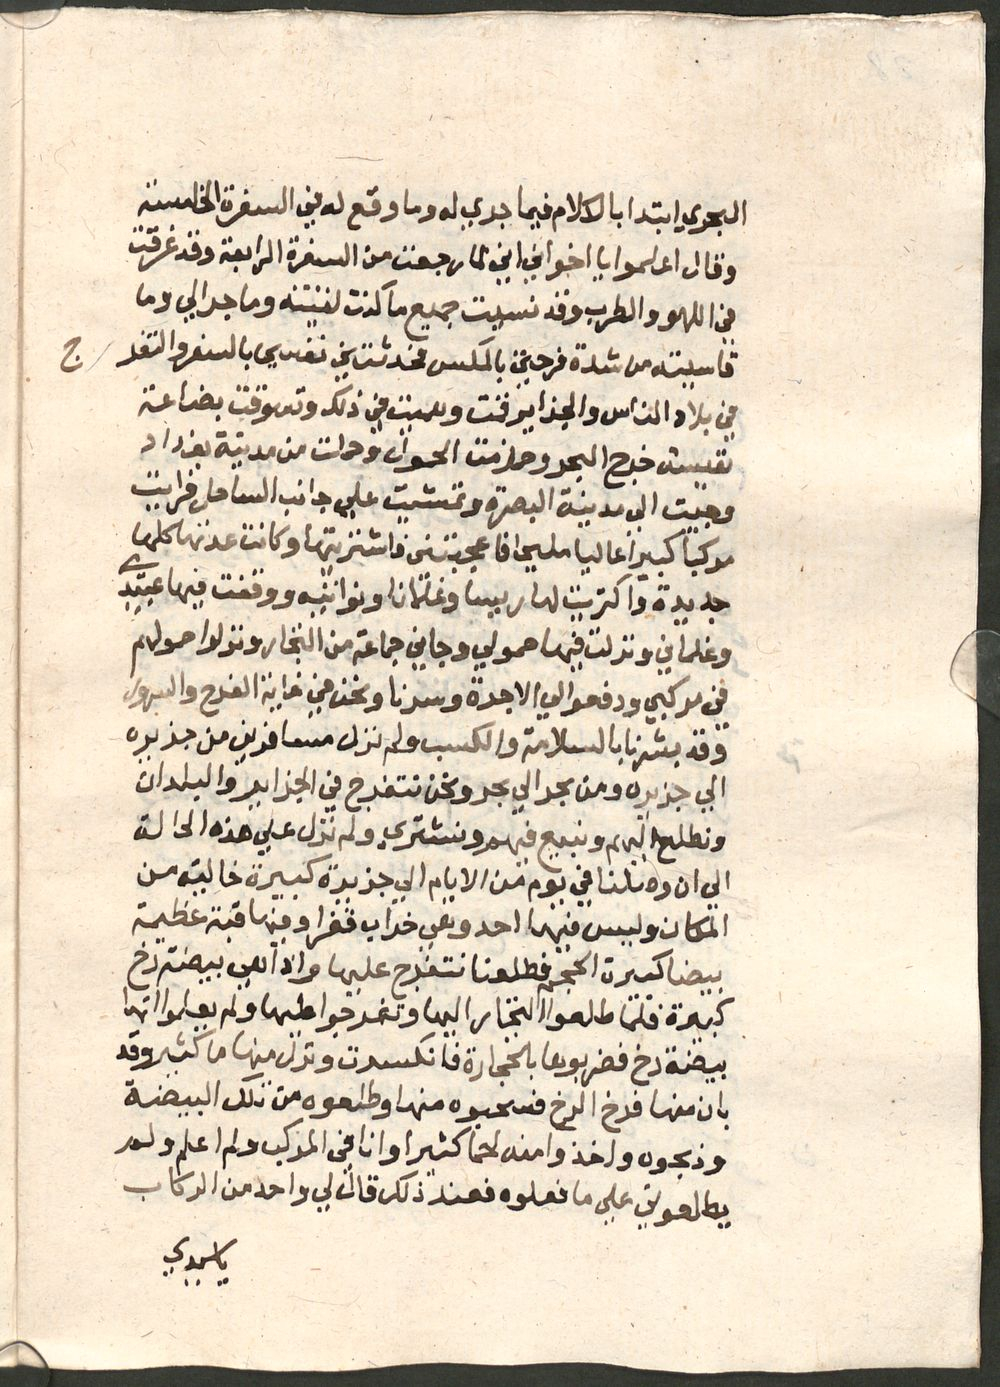 البحري ابتدا بالكلام فيما جري له وما وقع له في السفرة الخامسة
وقال اعلموا يا اخواني اني لما رجعت من السفرة الرابعة وقد غرقت
في اللهو والطرب وقد نسيت جميع ما كنت لقيته وما جرالي وما
قاسيته من شدة فرحتي بالمكسب فحدثتني نفسي بالسفر والتفرج
في بلاد الناس والجزاير فقمت وهميت في ذلك وتسوقت بضاعة
نفيسة خرج البحر وحزمت الحمول وحملت من مدينة بغداد
وجيت الي مدينة البصرة وتمشيت علي جانب الساحل فرايت
مركبا كبيرا عاليا مليحا فاعجبتني فاشتريتها وكانت عدتها كلها
جديدة واكتريت لها ريسا وغلمانا ونواتيه ووقفت فيها عبيدي
وغلماني ونزلت فيها حمولي وجاني جماعة من التجار ونزلوا حمولهم
في مركبي ودفعوالي الاجرة وسرنا ونحن في غاية الفرح والسرور
وقد بشرنا بالسلامة والكسب ولم نزل مسافرين من جزيره
الي جزيره ومن بحر الي بحر ونحن نتفرج في الجزاير والبلدان
ونطلع اليهم ونبيع فيهم ونشتري ولم نزل علي هذه الحالة
الي ان وصلنا في يوم من الايام الي جزيرة كبيرة خالية من
المكان وليس فيها احد وهي خراب قفرا وفيها قبة عظيمة
بيضا كبيرة الحجم فطلعنا نتفرج عليها واذا هي بيضة رخ
كبيرة فلما طلعوا التجار اليها وتفرجوا عليها ولم يعلموا انها
بيضة رخ فضربوها بالحجارة فانكسرت ونزل منها ما كثير وقد
بان منها فرخ الرخ فسحبوه منها وطلعوه من تلك البيضة
وذبحوه واخذوا منه لحما كثيرا وانا في المركب ولم اعلم ولم
يطلعوني علي ما فعلوه فعند ذلك قال لي واحد من الركاب
يا سيدي